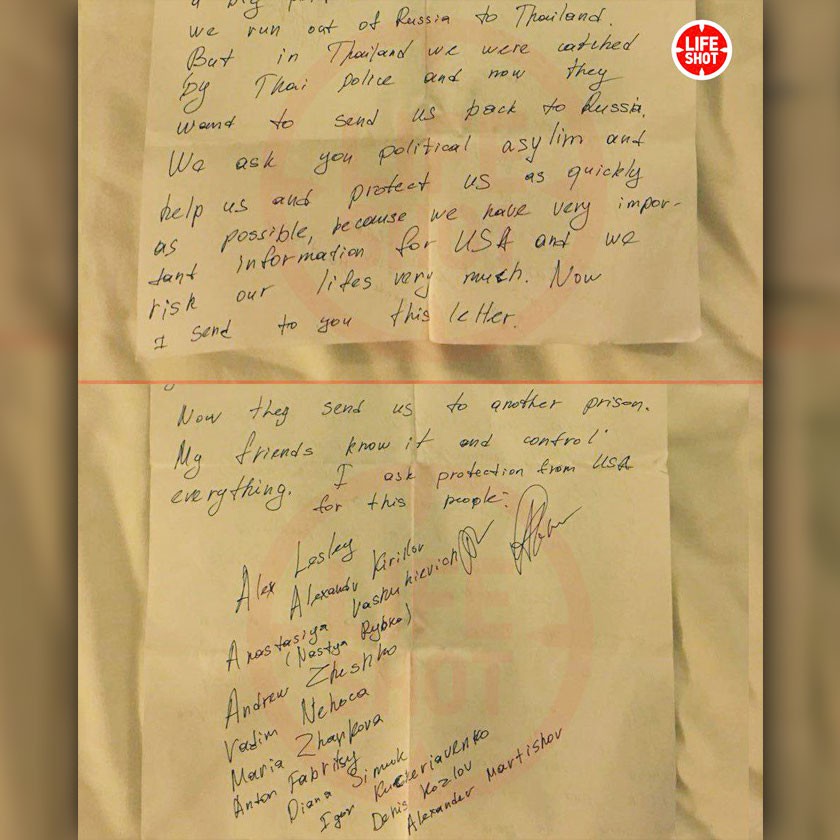 LIFE
SHOT
a big
we run out of Russia to Thailand.
But in Thailand we were catched
by Thai Police and now they
want to send us back to Russia.
We ask you political asylim and
help us and protect us as quickly
as possible, because we have very impor-
tant information for USA and we
risk our lifes very much. Now
I send to you this letter.
Now they send us to another prison.
My friends know it and control
everything. I ask protection from USA
for this people:
Alex Lesley
Alexandr Kirillov
Anastasiya Vashukievich
(Nastya Rybka)
Andrew Zheshko
Vadim Nehoca
Maria Zharkova
Anton Fabritsy
Diana Simuk
Igor Kucheriavenko
Denis Kozlov
Alexander Martishov